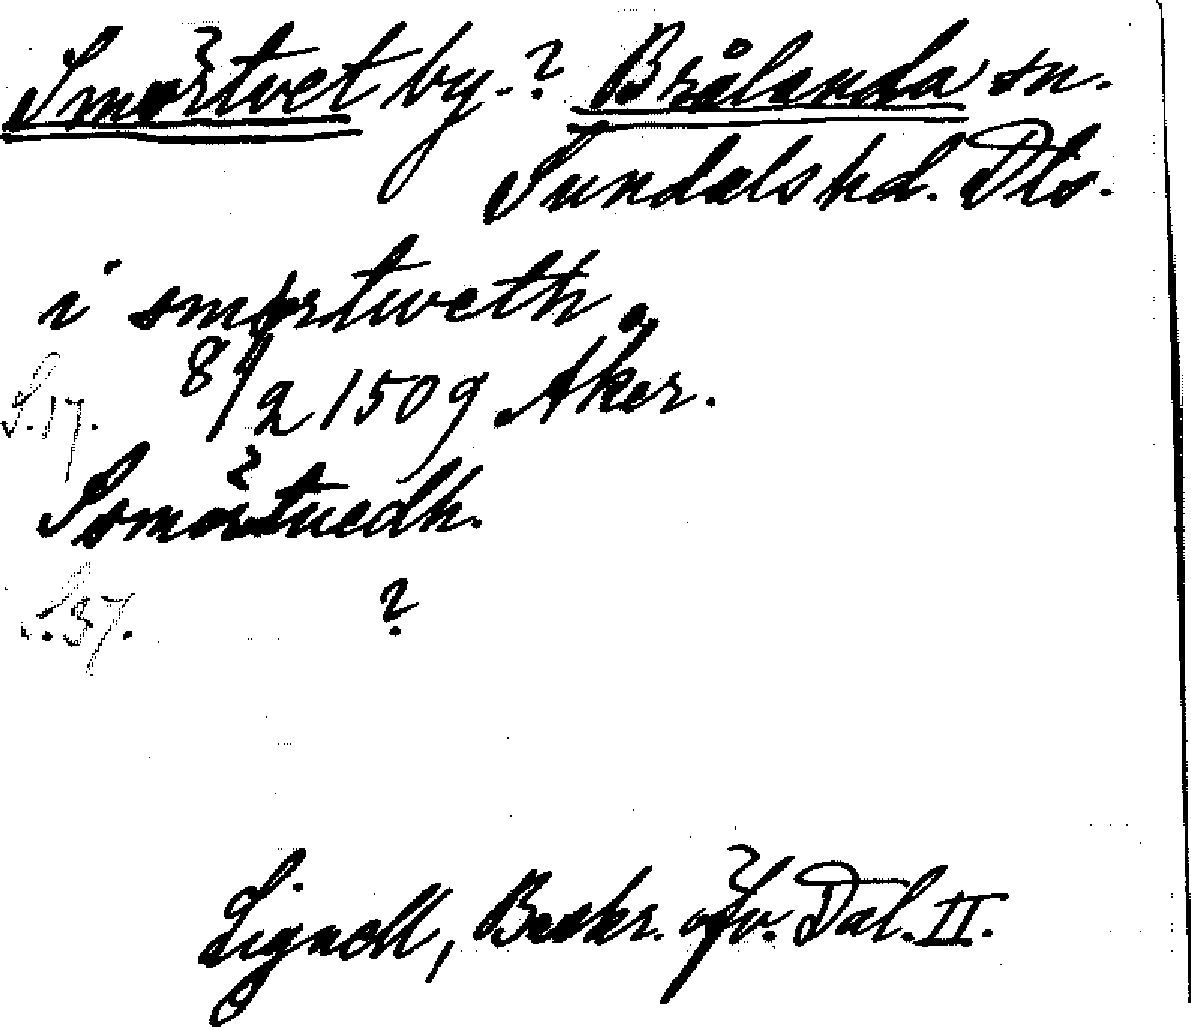 Smörtvet by.? Brålanda sn.
Sundals hd. Dls.
i smørtweth
8/2 1509 Åker.
S.17.
Ssmörtuedh.
S.37. ?
Lignell, Beskr. öfv. Dal. II.